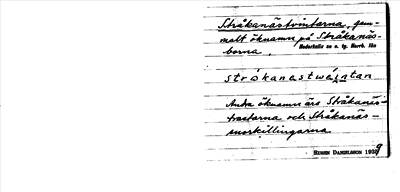 Stråkanästvintarna, gam-
malt öknamn på Stråkanäs-
borna.
Nederkalix sn o. tg. Norrb. län
strókanastwé
Andra öknamn ärs Stråkanäs-
tractarna och Stråkanäs-
morkillingarna
RUBEN DANIELSSON 1939